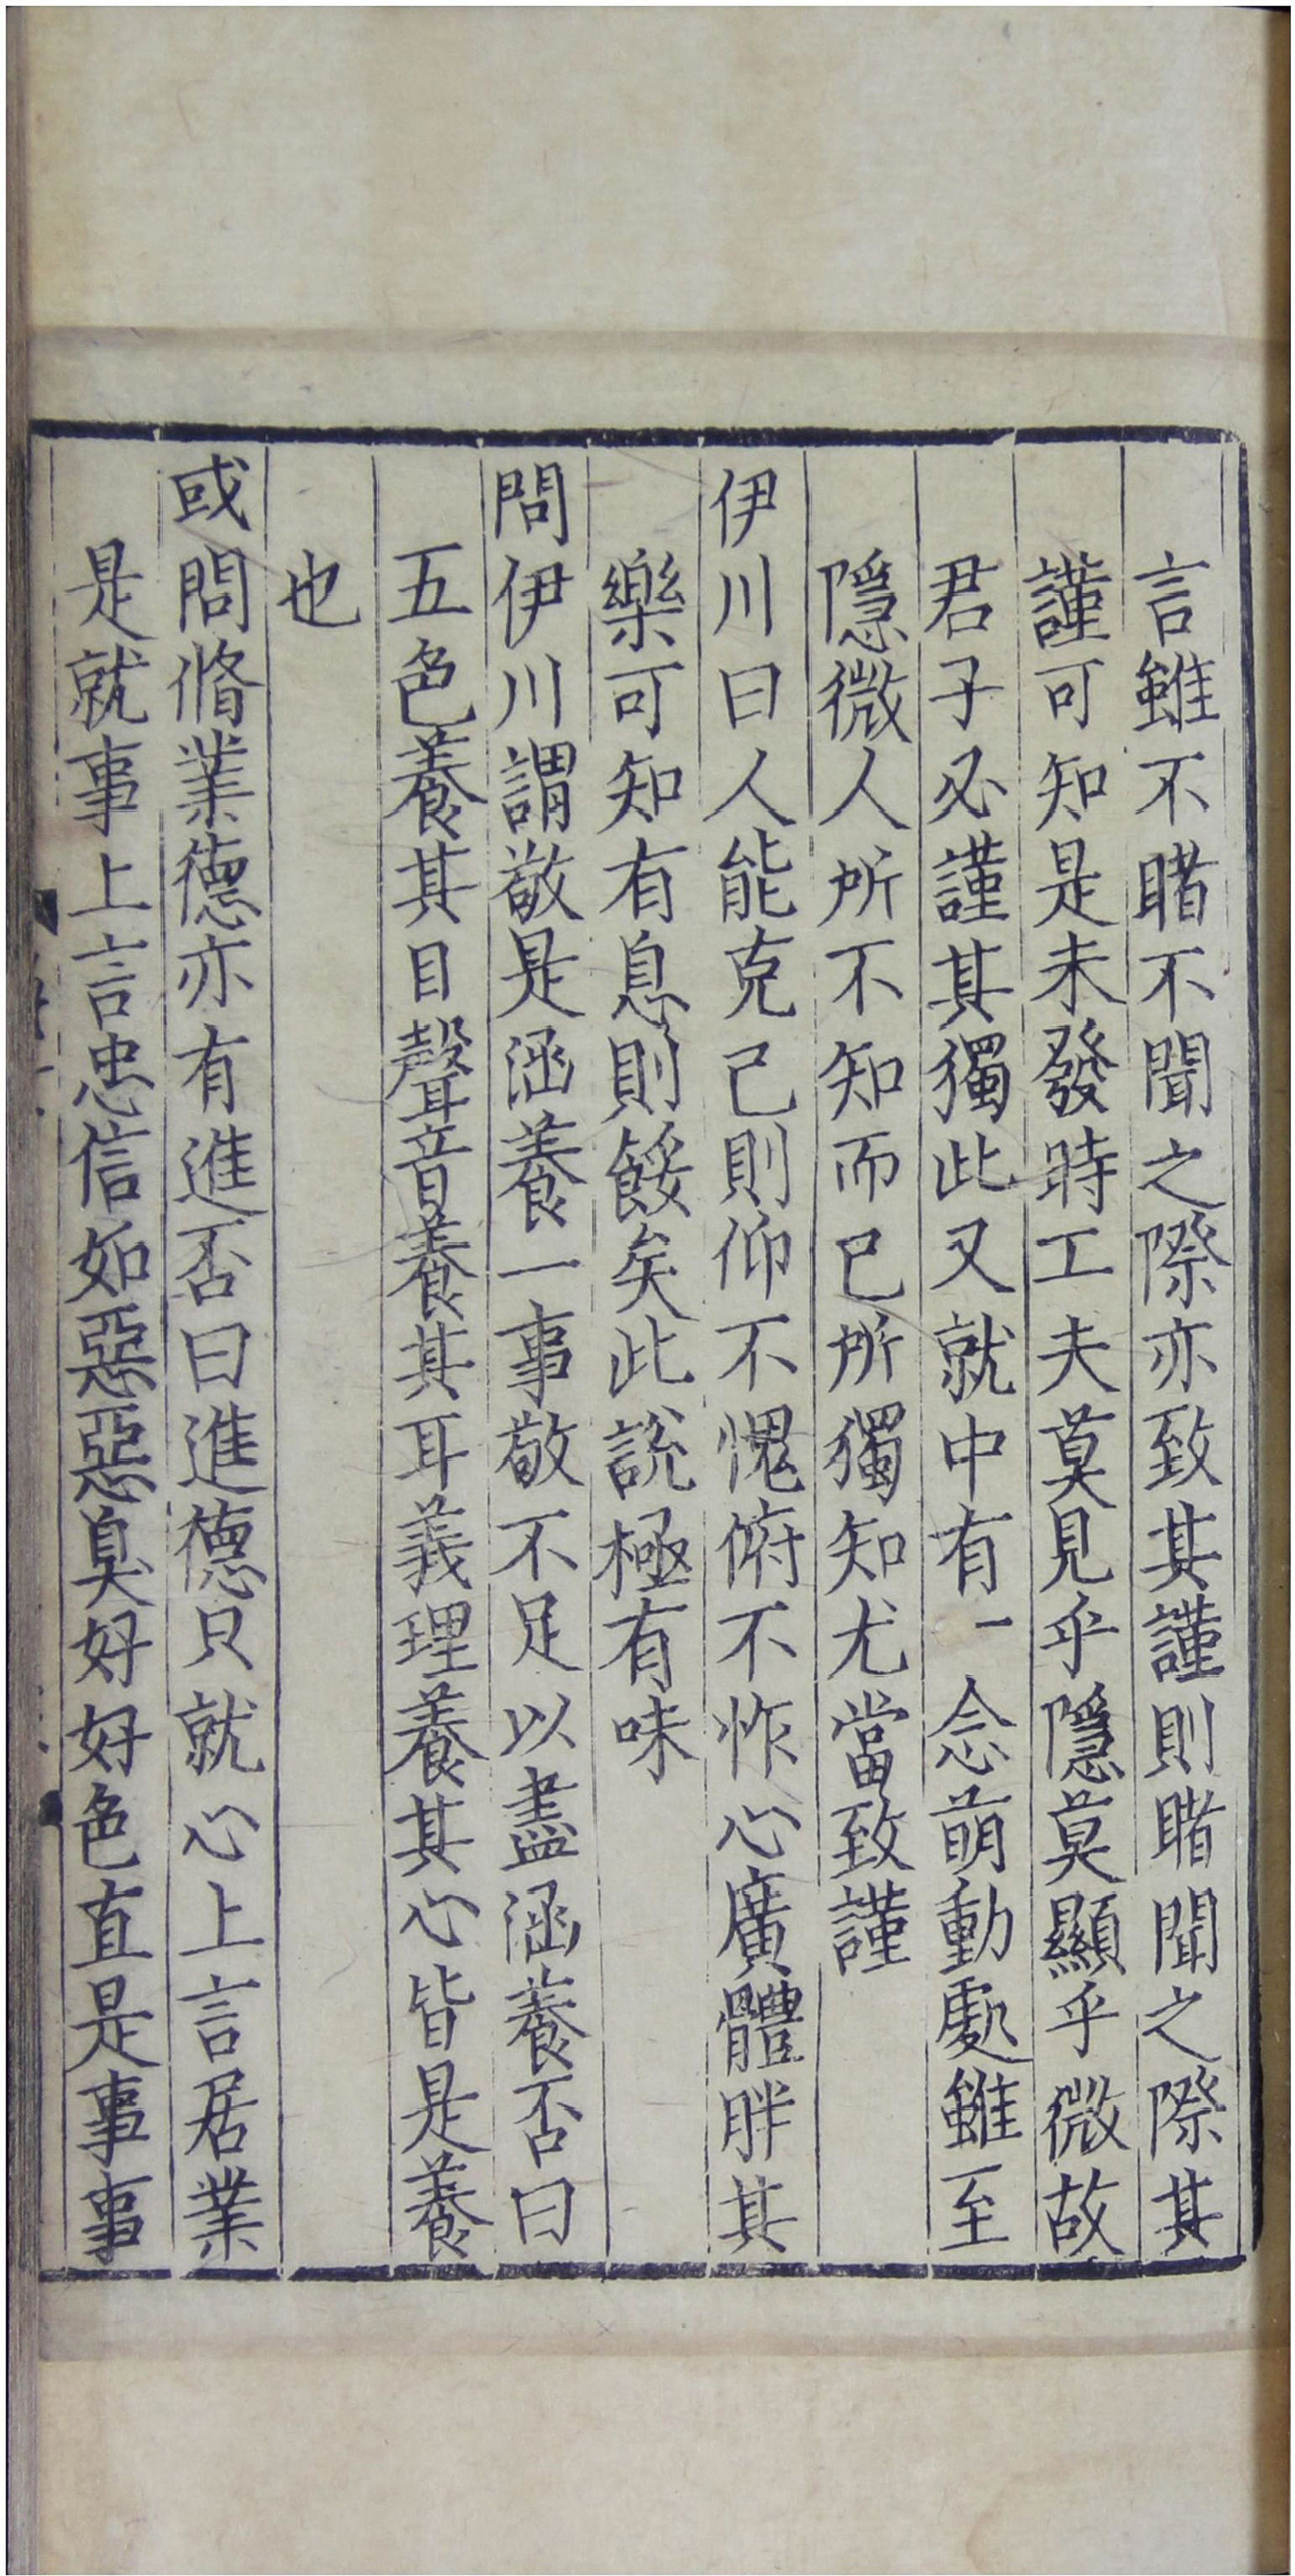 言雖不睹不聞之際亦致其謹則睹聞之際其
謹可知是未發時工夫莫見乎隱莫顯乎微故
君子必謹其獨此又就中有一念萌動處雖至
隱微人所不知而已所獨知尤當致謹
伊川曰人能克己則仰不愧俯不怍心廣體胖其
樂可知有息則餒矣此說極有味
問伊川謂敬是涵養一事敬不足以盡涵養否曰
五色養其目聲音養其耳義理養其心皆是養
也
或問脩業德亦有進否曰進德只就心上言居業
是就事上言忠信如惡惡臭好好色直是事事